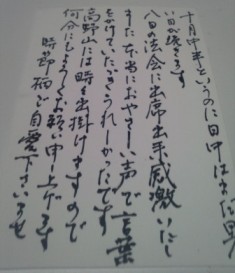 十月中半というのに日中はまだ暑
い日が続きます
八日の法会に出席出来感激いたし
また本当におやさしい声で言葉
をかけていただきうれしかったです
高野山には時々出掛けますので
何分にもよろしくお願い申し上げます
時節柄ご自愛下さいませ